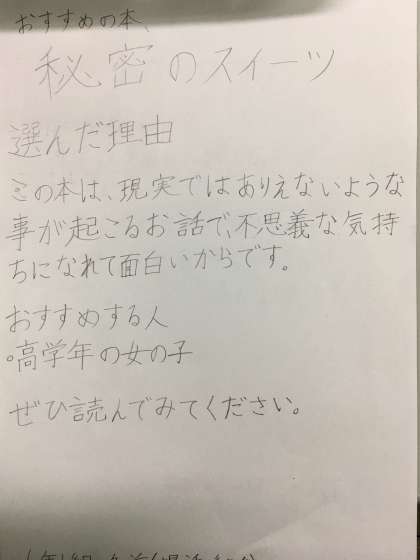 おすすめの本、
秘密のスイーツ
選んだ理由
この本は、現実ではありえないような
事が起こるお話で、不思議な気持
ちになれて面白いからです。
おすすめする人
。高学年の女の子
ぜひ読んでみてください。